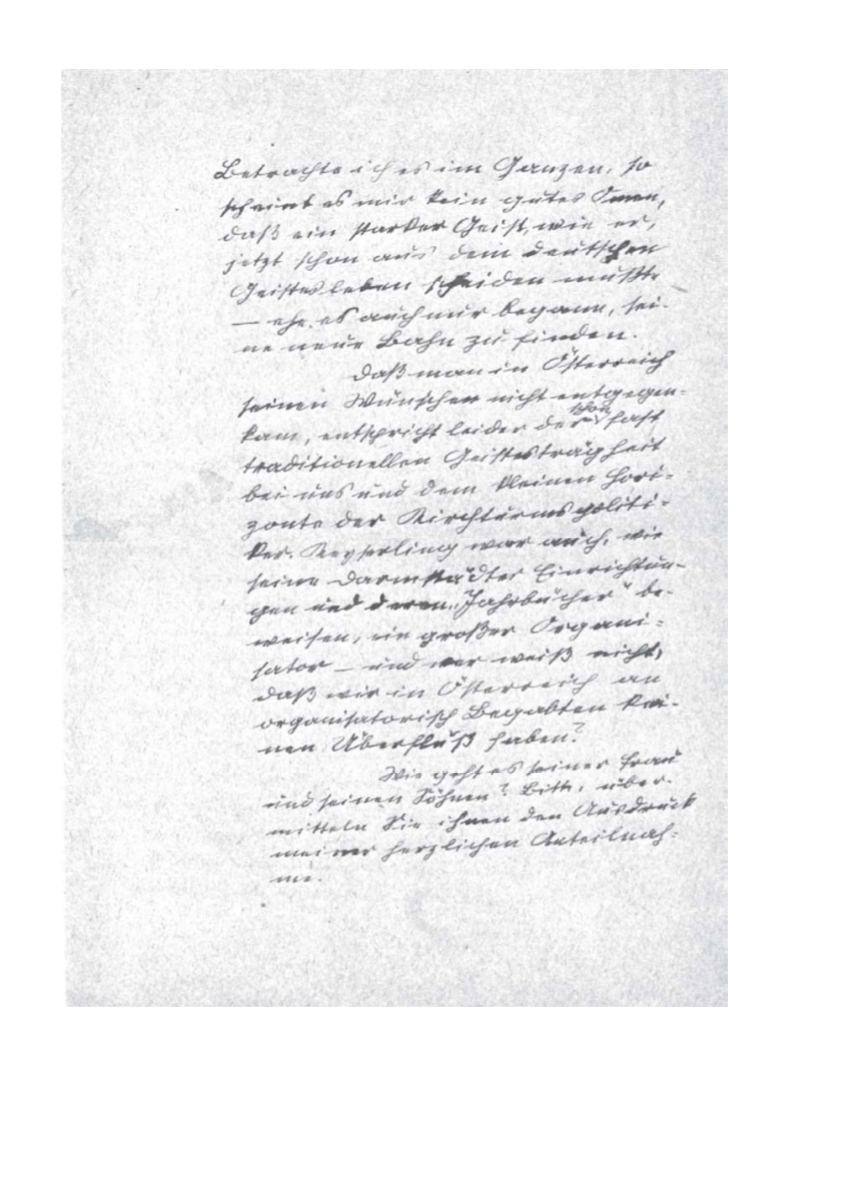 Betrachte ich es im Ganzen, so
scheint es mir kein gutes Omen,
daß ein starker Geist, wie er,
jetzt schon aus dem deutschen
Geistesleben scheiden mußte
— ehe es auch nur begann, sei-
ne neue Bahn zu finden.
Daß man in Österreich
seinen Wünschen nicht entgegen-
kam, entspricht leider der schon fast
traditionellen Geistesträgheit
bei uns und dem kleinen Hori-
zonte der Kirchturmspoliti-
ker. Keyserling war auch, wie
seine Darmstädter Einrichtun-
gen und deren „Jahrbücher" be-
weisen, ein großer Organi-
sator — und wer weiß nicht,
daß wir in Österreich an
organisatorisch Begabten kei-
nen Überfluß haben?
Wie geht es seiner Frau
und seinen Söhnen? Bitte, über-
mitteln Sie ihnen den Ausdruck
meiner herzlichen Anteilnah-
me.